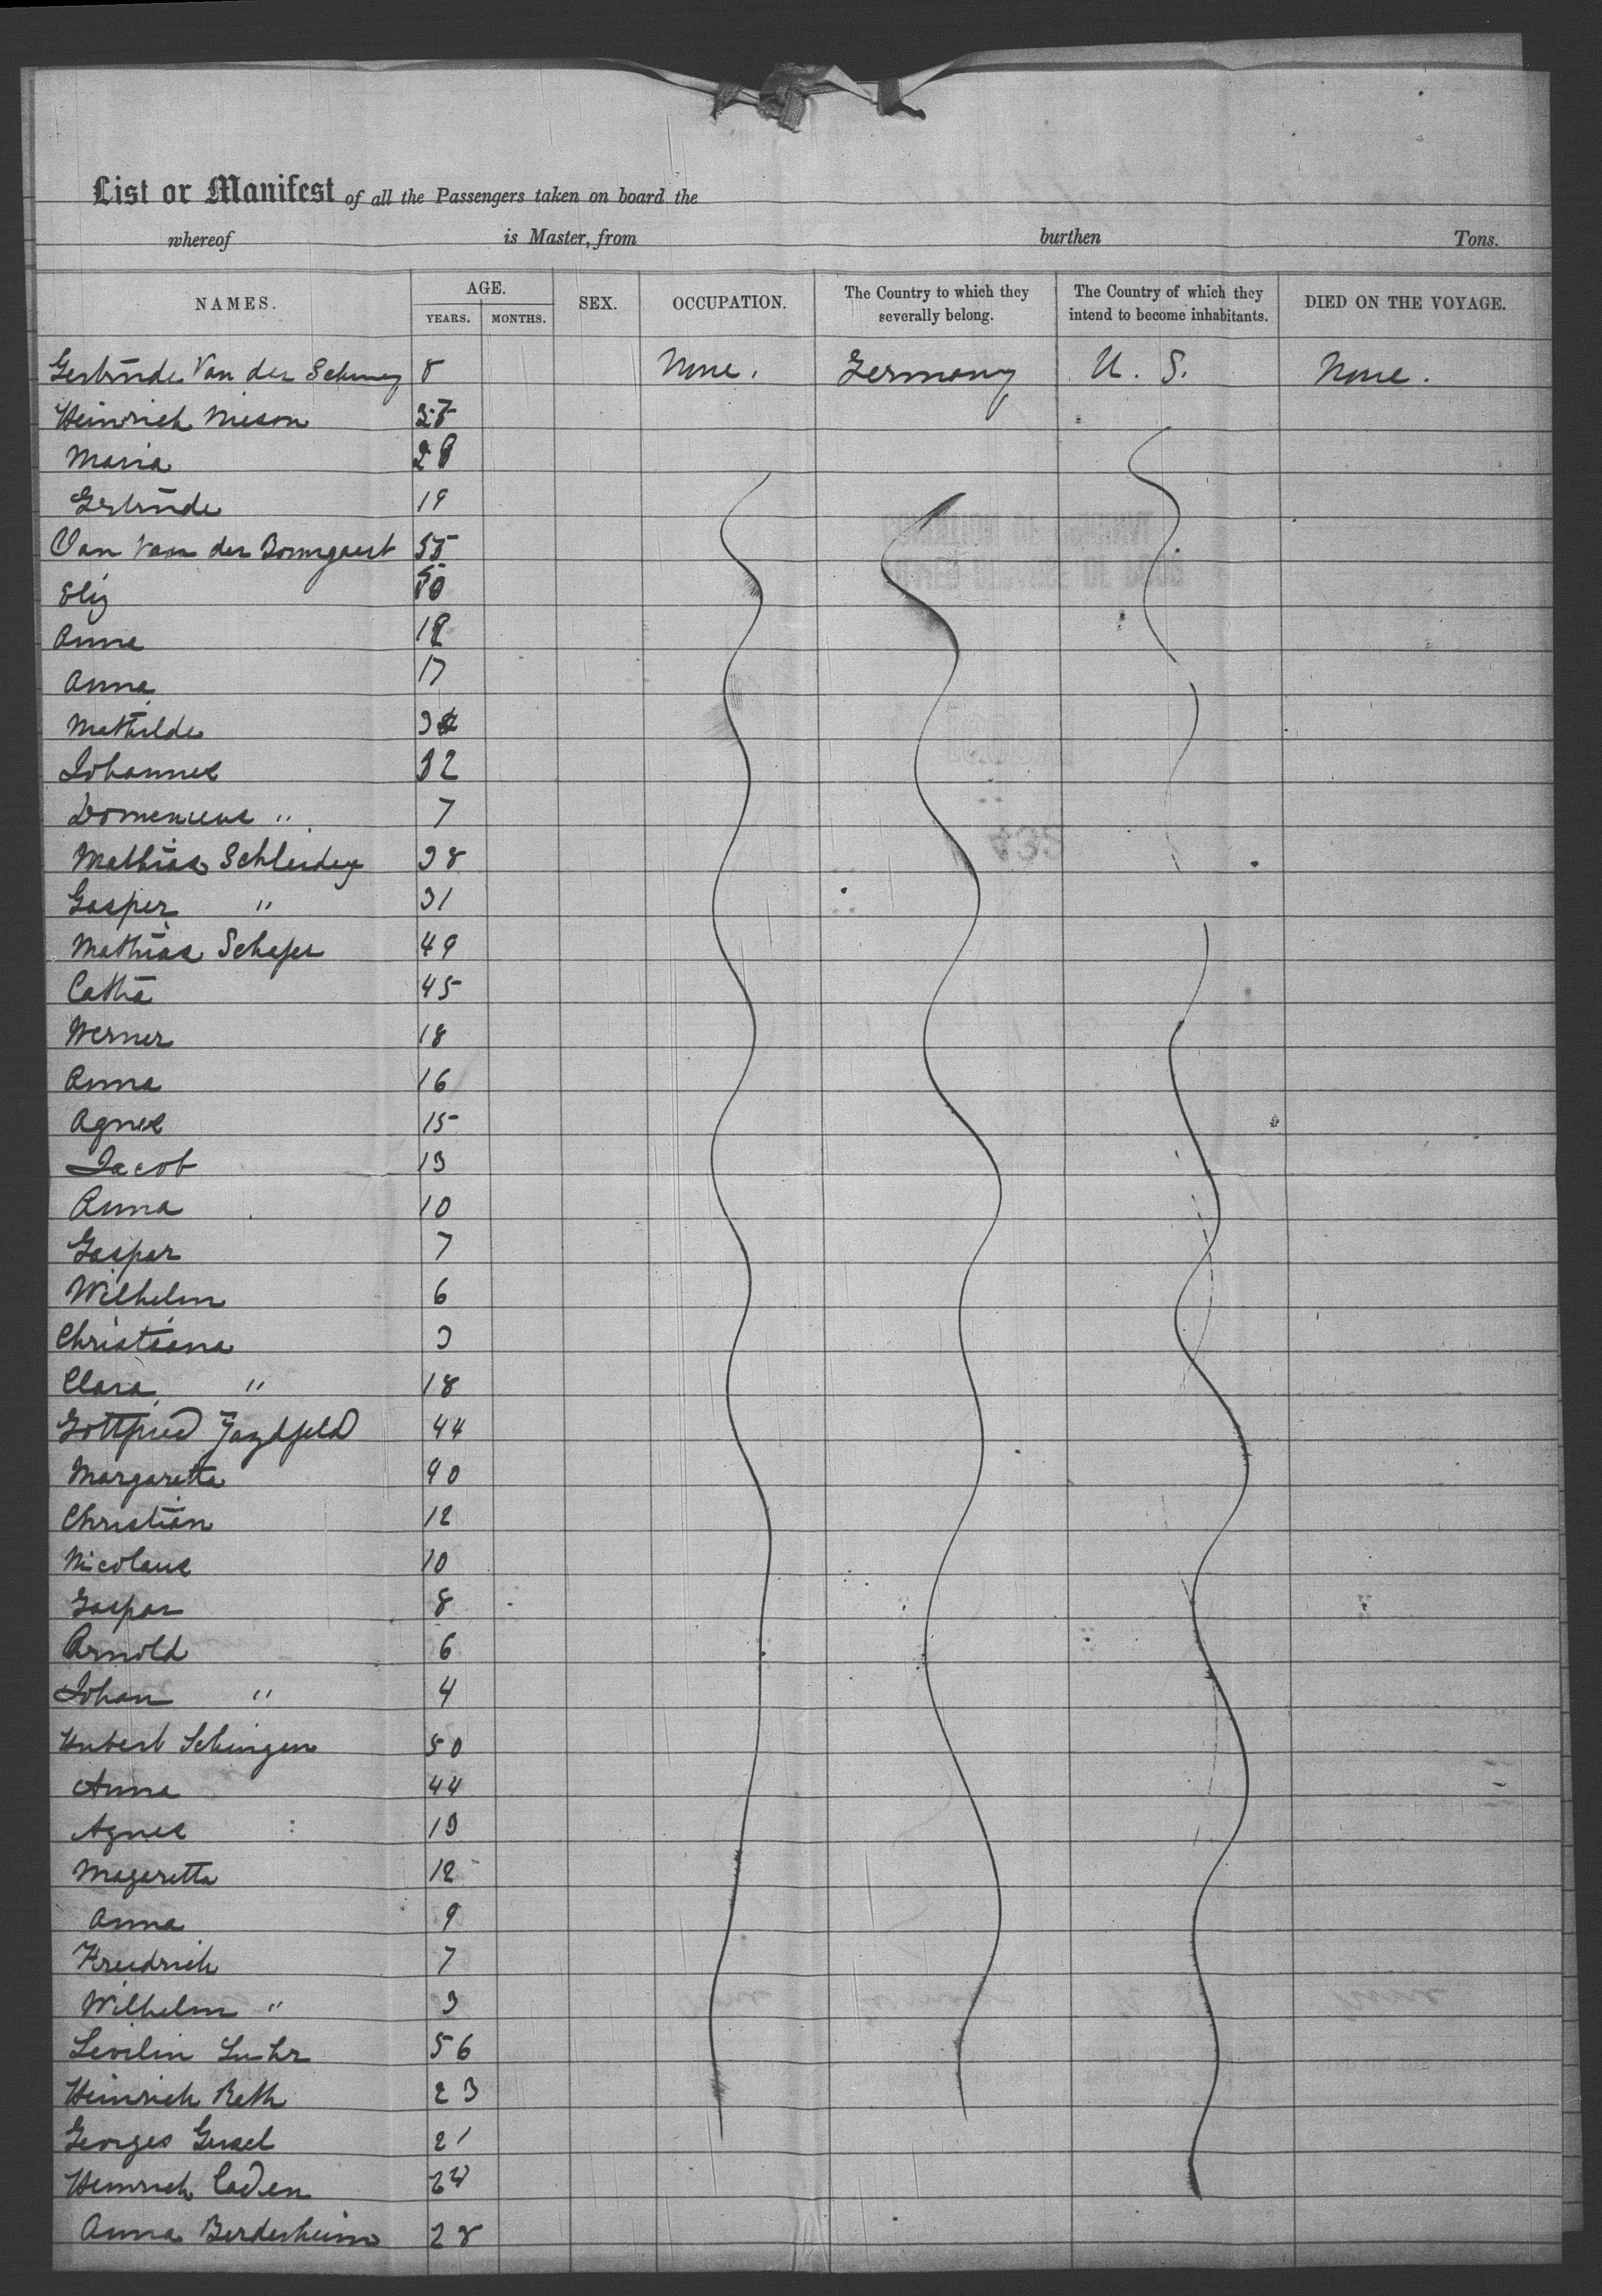 List or Manifest of all the Passengers taken on board the
whereof is Master, from burthen Tons.
NAMES. AGE. SEX. OCCUPATION. The Country to which they severally belong. The Country of which they intend to become inhabitants. DIED ON THE VOYAGE.
YEARS. MONTHS.
Gertrude Van der 8 None. Germany U. S. None.
Heinrich Nieson
Maria 28
Gertrude 19
Van der 55
Eliz 50
Anna
Anna 17
Mathilde
Johannes 32
Domenicus " 7
Mathias 38
Gasper " 31
Mathias Schefer 49
Catha 45
Werner 18
Anna 16
Agnes 15
Jacob 13
Anna 10
Gaspar 7
Wilhelm 6
Christiana 3
Clara " 18
Gottfried 44
Margaretta 40
Christian 12
Nicolaus 10
Gaspar 8
Arnold 6
Johan " 4
Hubert 50
Anna 44
Agnes 13
Magaretta 12
Anna 9
Freidrich 7
Wilhelm " 3
Luhr 56
Heinrich Reth 23
Georges 21
Heinrich Caden 24
Anna Berdesheim 28